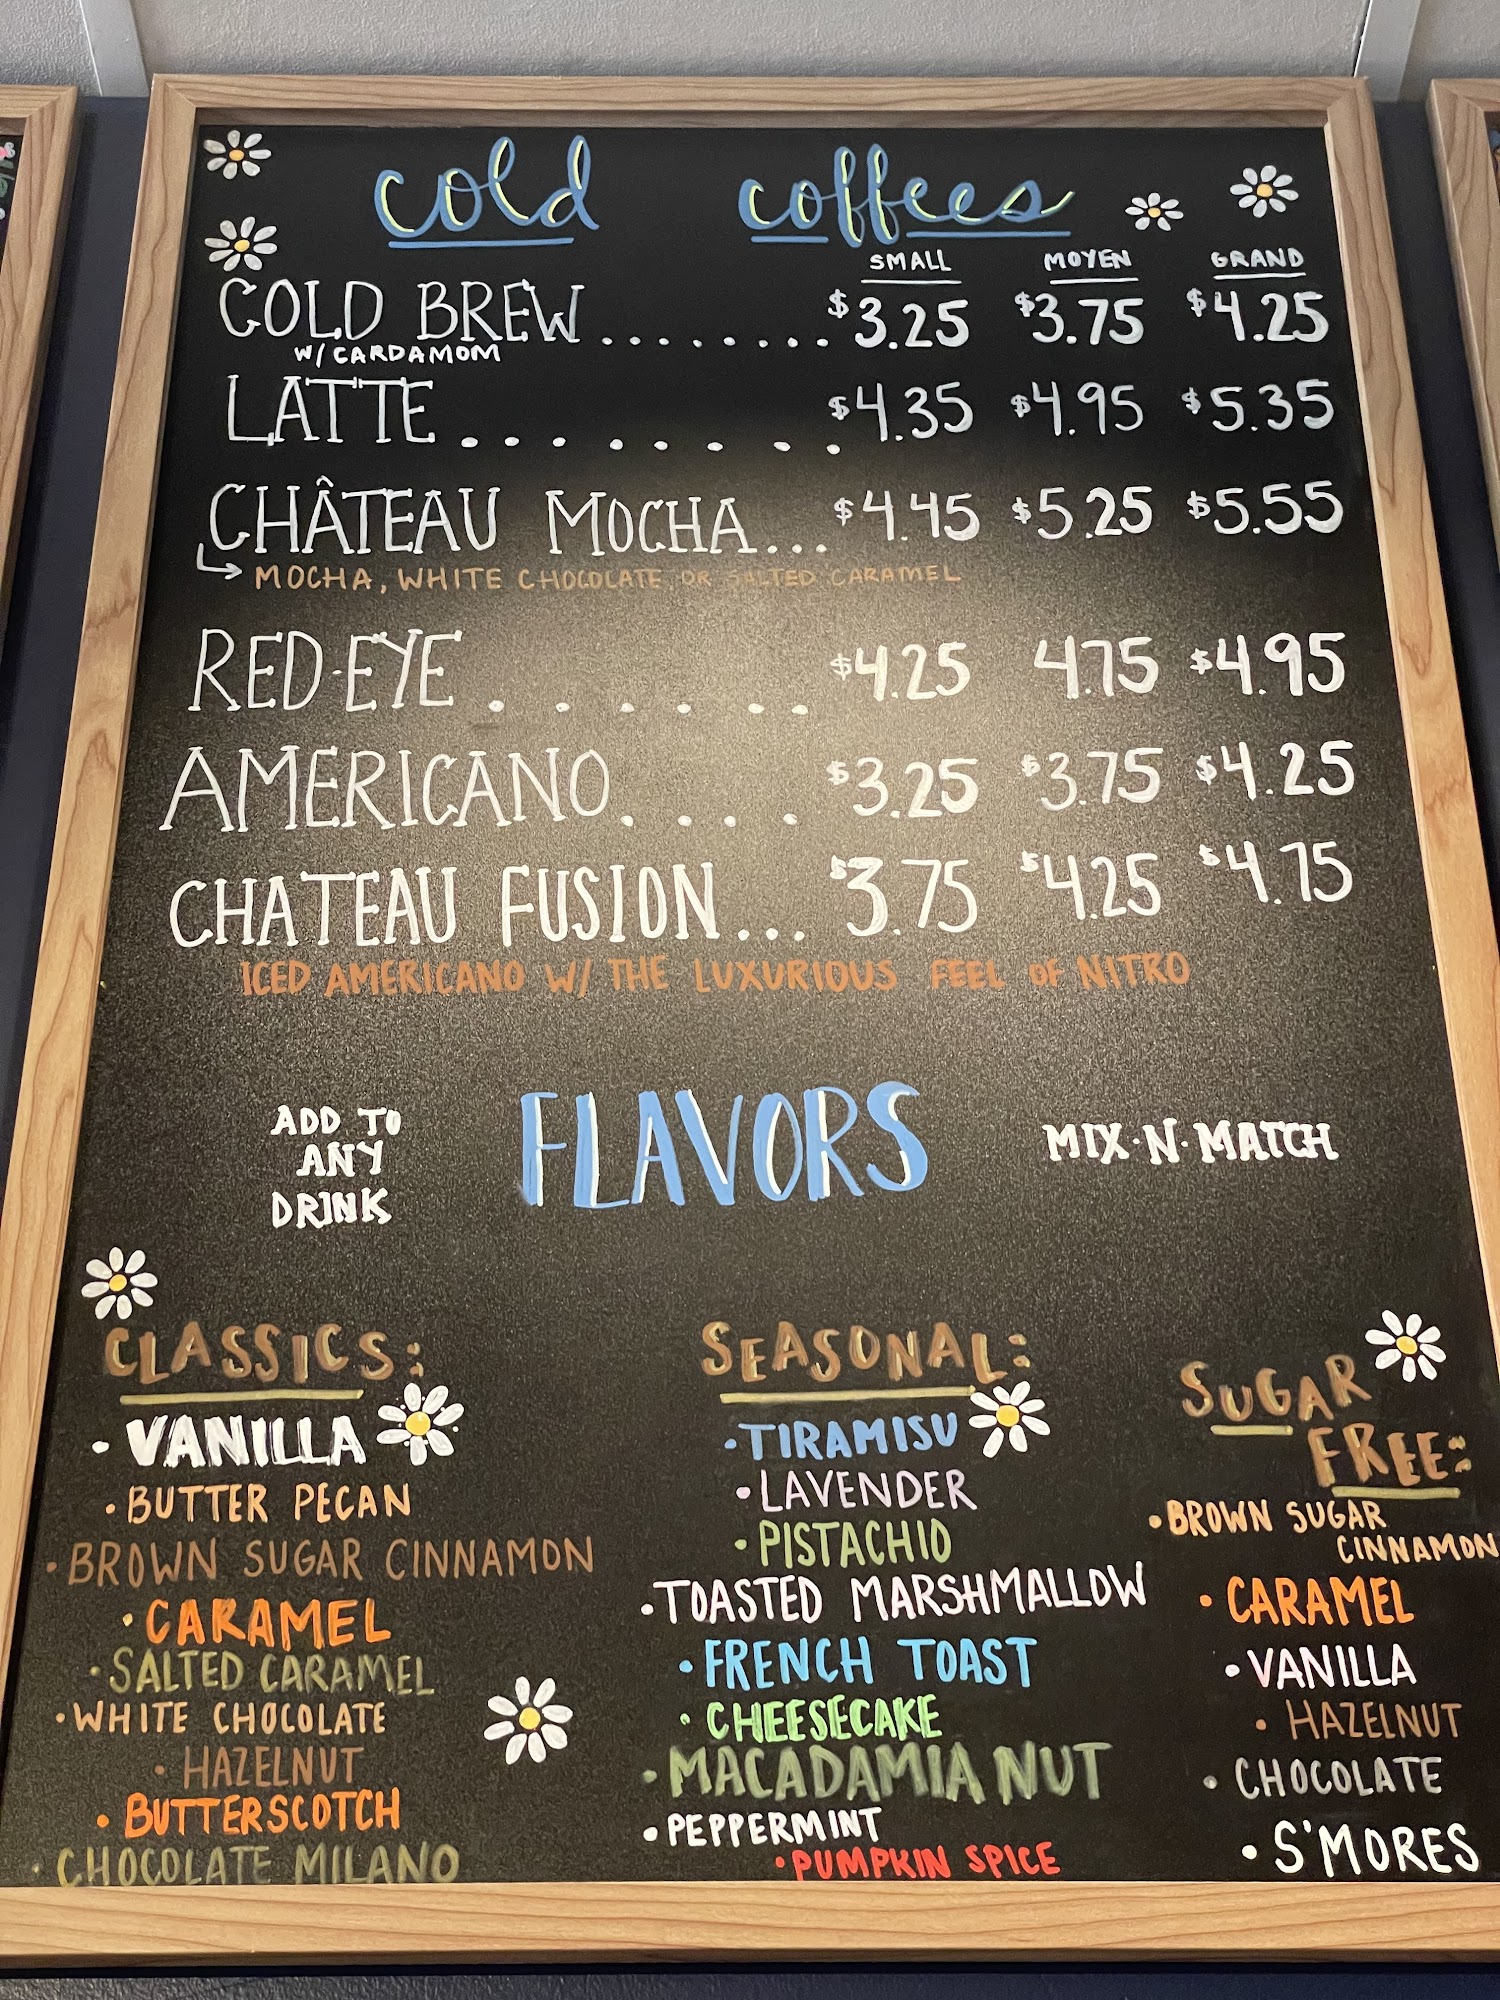 cold coffees
SMALL MOYEN GRAND
COLD BREW ........ $3.25 $3.75 $4.25
W/ CARDAMOM
LATTE ........ $4.35 $4.95 $5.35
CHÂTEAU MOCHA... $4.45 $5.25 $5.55
MOCHA, WHITE CHOCOLATE OR SALTED CARAMEL
RED·EYE ...... $4.25 4.75 $4.95
AMERICANO.... $3.25 $3.75 $4.25
CHATEAU FUSION... $3.75 $4.25 $4.75
ICED AMERICANO W/ THE LUXURIOUS FEEL OF NITRO
ADD TO
ANY
DRINK
FLAVORS
MIX·N·MATCH
CLASSICS:
·VANILLA
·BUTTER PECAN
·BROWN SUGAR CINNAMON
·CARAMEL
·SALTED CARAMEL
·WHITE CHOCOLATE
·HAZELNUT
·BUTTERSCOTCH
·CHOCOLATE MILANO
SEASONAL:
·TIRAMISU
·LAVENDER
·PISTACHIO
·TOASTED MARSHMALLOW
·FRENCH TOAST
·CHEESECAKE
·MACADAMIA NUT
·PEPPERMINT
·PUMPKIN SPICE
SUGAR
FREE:
·BROWN SUGAR
CINNAMON
·CARAMEL
·VANILLA
·HAZELNUT
·CHOCOLATE
·S'MORES